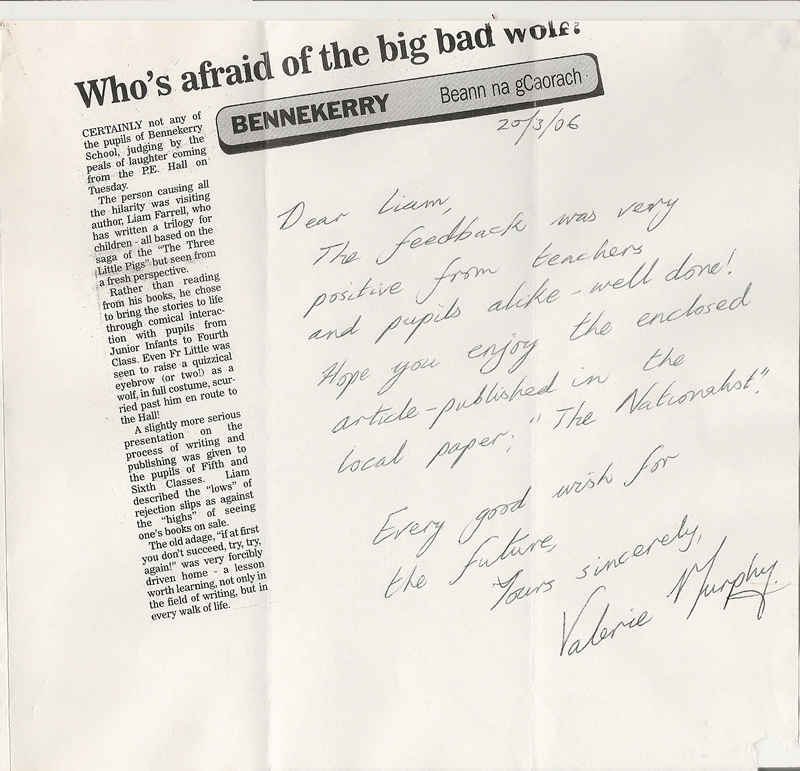 Who's afraid of the big bad wolf?
BENNEKERRY Beann na gCaorach
CERTAINLY not any of
the pupils of Bennekerry
School, judging by the
peals of laughter coming
from the P.E. Hall on
Tuesday.
The person causing all
the hilarity was visiting
author, Liam Farrell, who
has written a trilogy for
children - all based on the
saga of the "The Three
Little Pigs" but seen from
a fresh perspective.
Rather than reading
from his books, he chose
to bring the stories to life
through comical interac-
tion with pupils from
Junior Infants to Fourth
Class. Even Fr Little was
seen to raise a quizzical
eyebrow (or two!) as a
wolf, in full costume, scur-
ried past him en route to
the Hall!
A slightly more serious
presentation on the
process of writing and
publishing was given to
the pupils of Fifth and
Sixth Classes. Liam
described the "lows" of
rejection slips as against
the "highs" of seeing
one's books on sale.
The old adage, "if at first
you don't succeed, try, try,
again!" was very forcibly
driven home - a lesson
worth learning, not only in
the field of writing, but in
every walk of life.
20/3/06
Dear Liam,
The feedback was very
positive from teachers
and pupils alike - well done!
Hope you enjoy the enclosed
article - published in the
local paper; "The Nationalist".
Every good wish for
the future,
Yours sincerely,
Valerie Murphy.